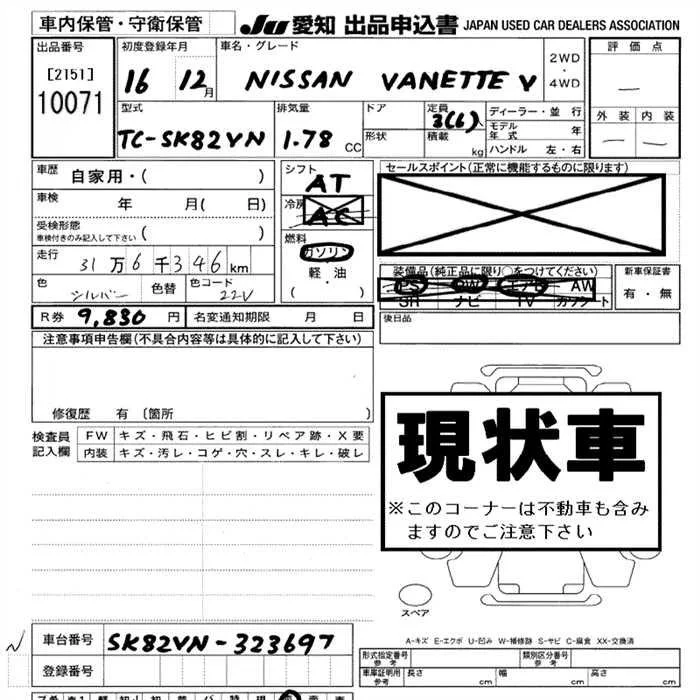 車内保管・守衛保管 JU 愛知 出品申込書 JAPAN USED CAR DEALERS ASSOCIATION
出品番号 初度登録年月 車名・グレード 2WD ・ 4WD 評価点
[2151] 10071 16 12月 NISSAN VANETTE V —
型式 排気量 ドア 定員 3(6)人 ディーラー・並行 外装 内装
TC-SK82VN 1.78 CC 形状 積載 kg モデル年式 年 — —
ハンドル 左・右
車歴 自家用・( ) シフト AT セールスポイント(正常に機能するものに限ります)
車検 年 月( 日) 冷房 AC
受検形態 車検付きのみ記入して下さい ( ) 燃料 ガソリン
走行 31万6千346km 軽・油 装備品(純正品に限り○をつけてください) 新車保証書
色 シルバー 色替 色コード 22V ( ) PS PW エアB AW 有・無
SR ナビ TV カワシート
R券 9,830 円 名変通知期限 月 日 後日品
注意事項申告欄(不具合内容等は具体的に記入して下さい)
修復歴 有〔箇所 〕
検査員記入欄 FW キズ・飛石・ヒビ割・リペア跡・X要
内装 キズ・汚レ・コゲ・穴・スレ・キレ・破レ
現状車
※このコーナーは不動車も含み
ますのでご注意下さい
スペア
A-キズ E-エクボ U-凹み W-補修跡 S-サビ C-腐食 XX-交換済
車台番号 SK82VN-323697
登録番号
形式指定番号 参考 類別区分番号 参考
車庫証明用 参考 長さ cm 幅 cm 高さ cm